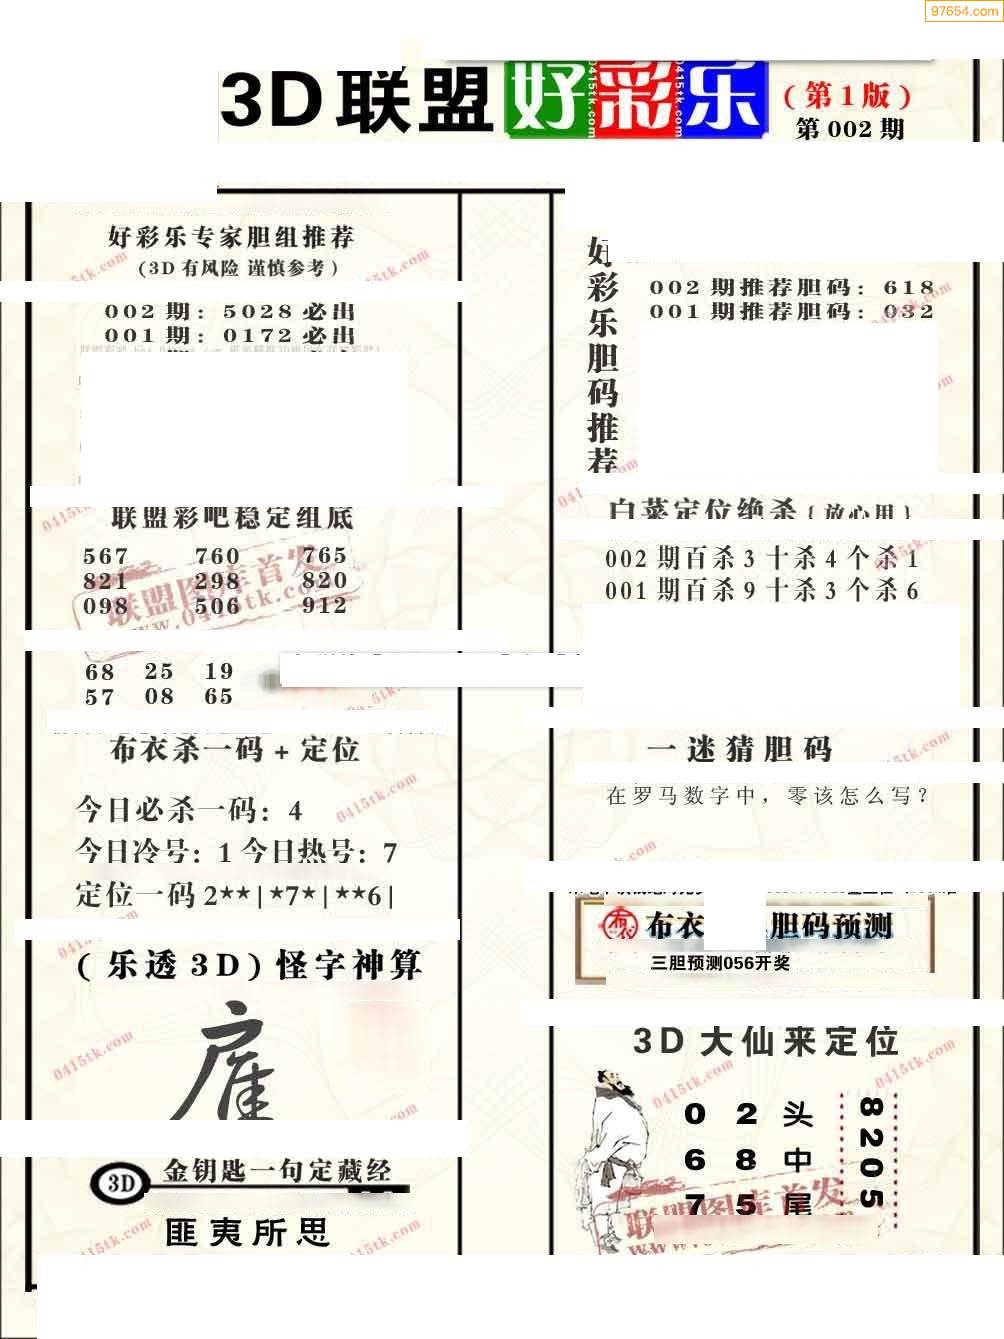 97654.com
3D联盟好彩乐
(第1版)
第002期
好彩乐专家胆组推荐
(3D有风险 谨慎参考)
002期: 5028必出
001期: 0172必出
联盟彩吧稳定组底
567 760 765
821 298 820
098 506 912
68 25 19
57 08 65
布衣杀一码+定位
今日必杀一码: 4
今日冷号: 1 今日热号: 7
定位一码 2**|*7*|**6|
(乐透3D)怪字神算
3D 金钥匙一句定藏经
匪夷所思
好彩乐胆码推荐
002期推荐胆码: 618
001期推荐胆码: 032
白菜定位绝杀{放心用}
002期百杀3十杀4个杀1
001期百杀9十杀3个杀6
一迷猜胆码
在罗马数字中，零该怎么写?
布衣 胆码预测
三胆预测056开奖
3D大仙来定位
0 2头
6 8中
7 5尾
8205
联盟图库首发
0415tk.com